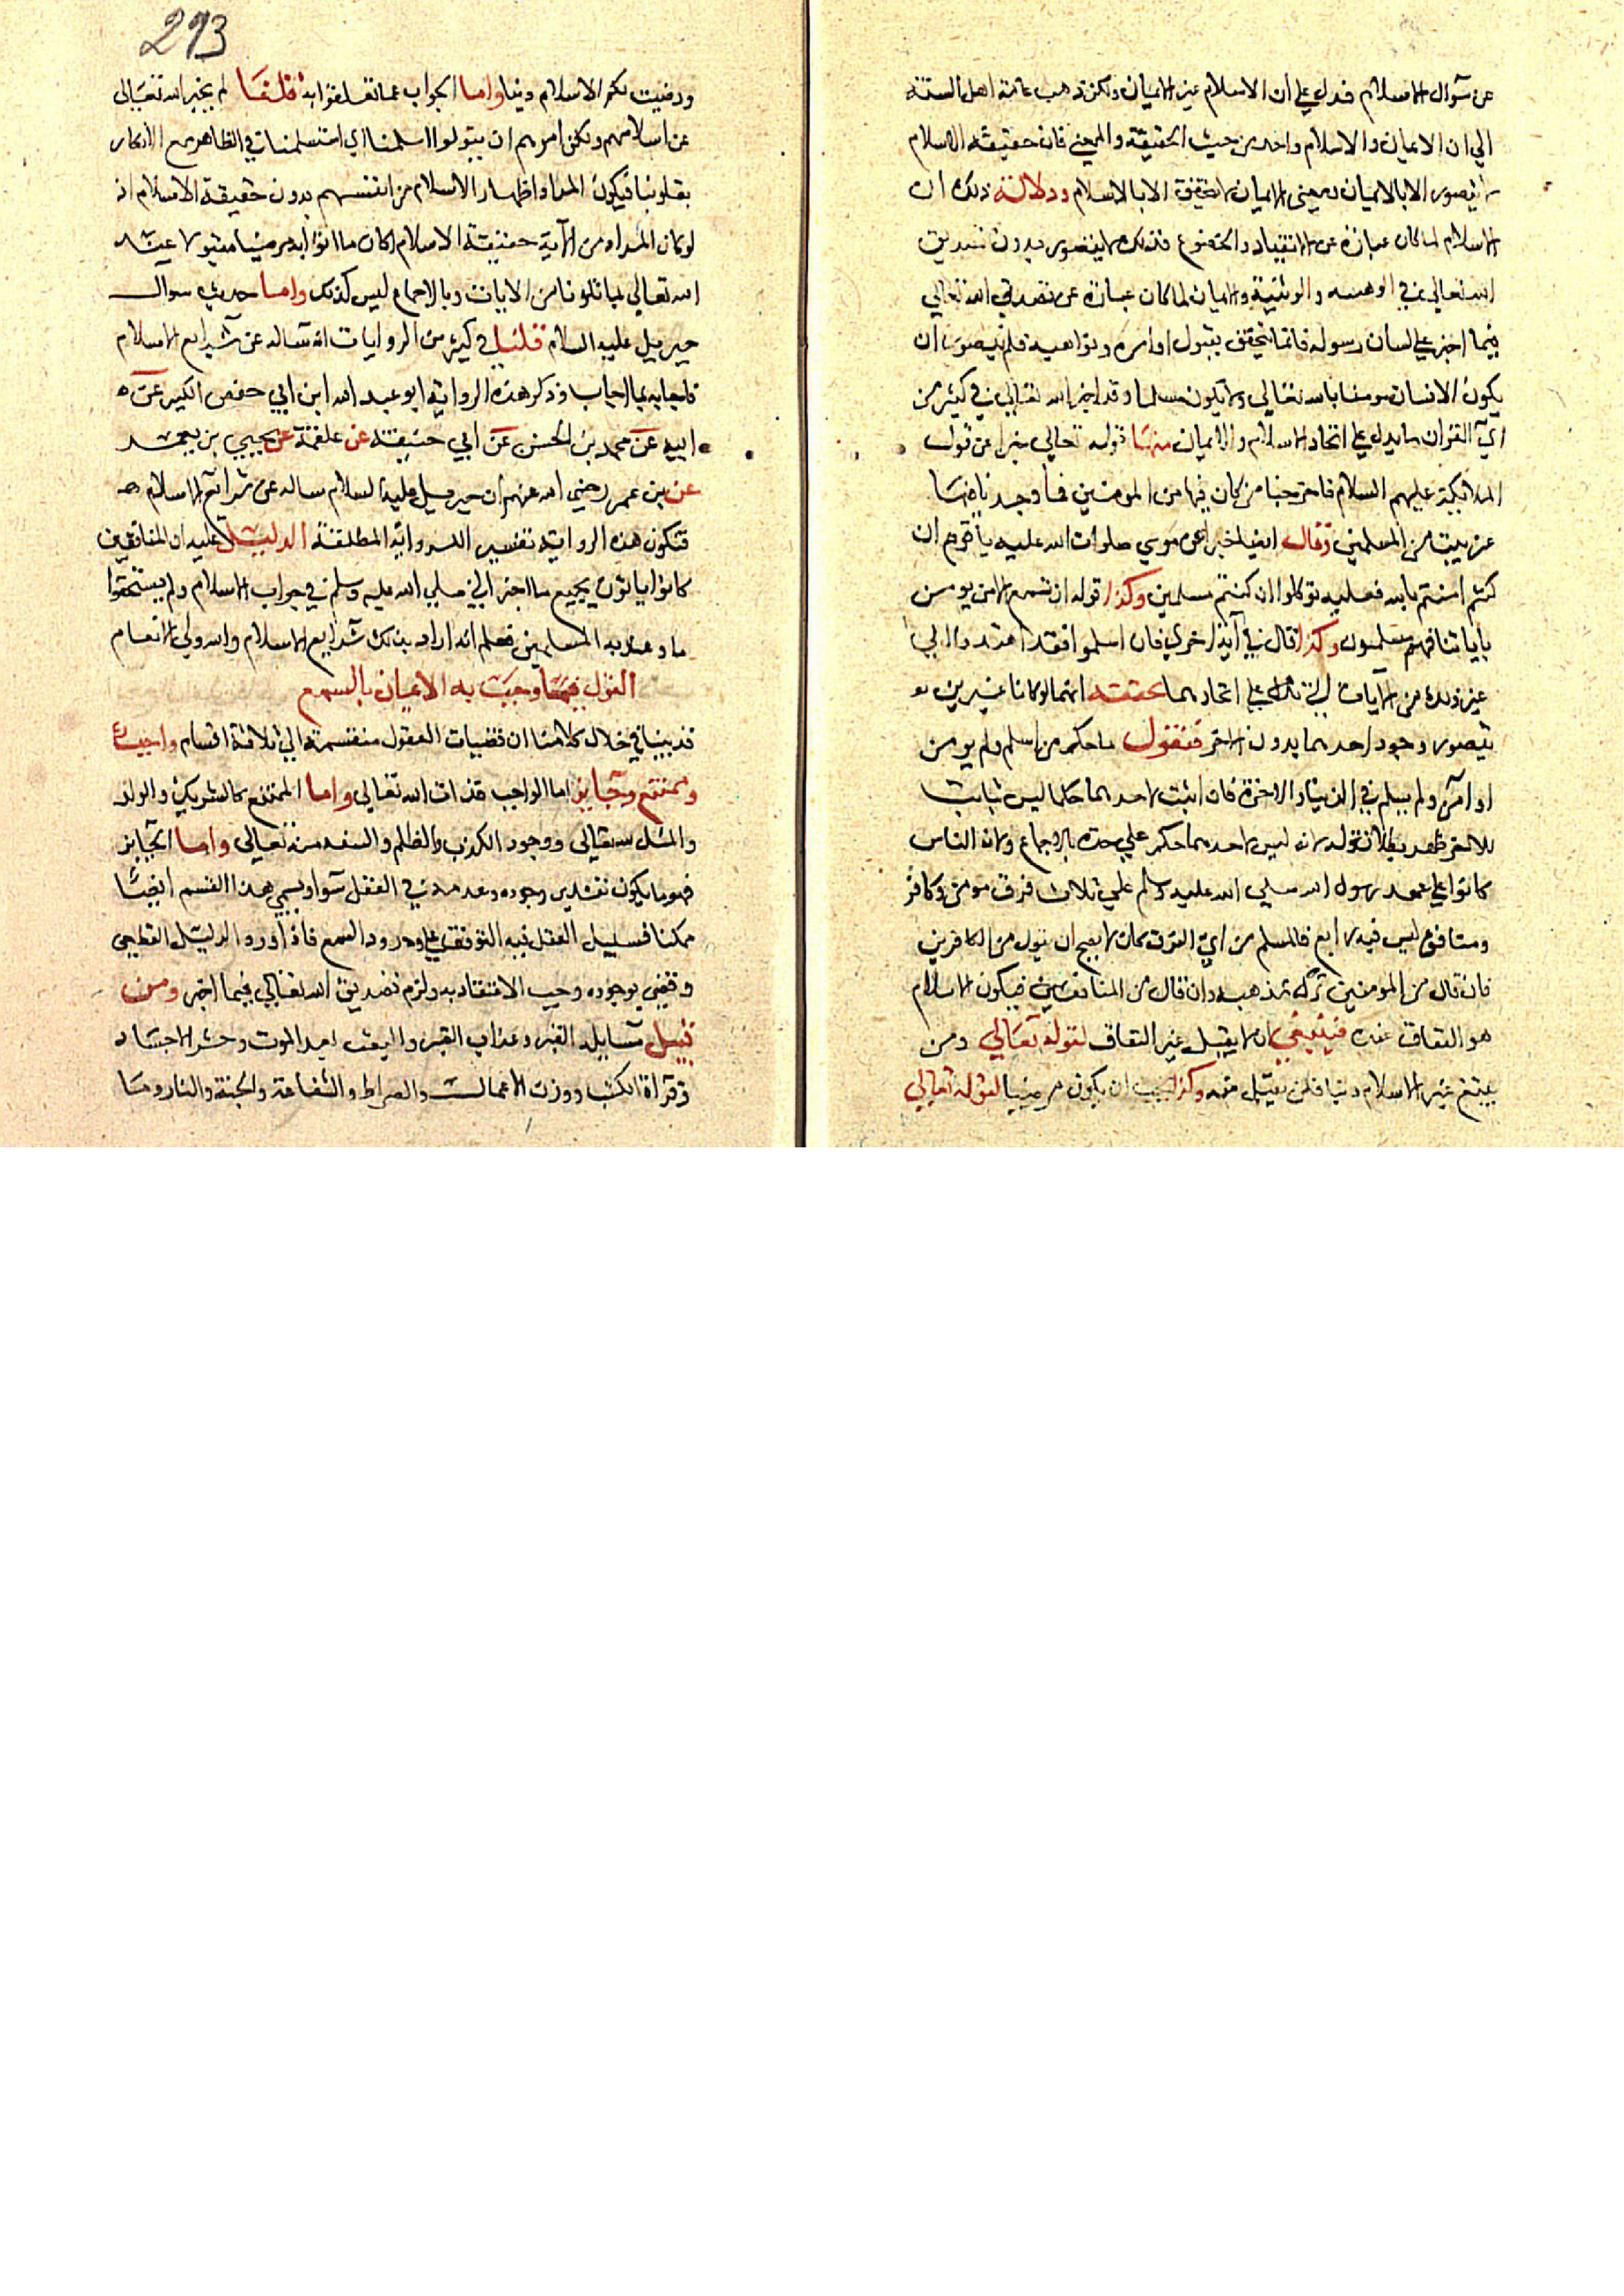 عن سوال الاسلام فدل علي ان الاسلام غير الايمان ولكن ذهب عامة اهل السنة
الي ان الايمان والاسلام واحد من حيث الحقيقة والمعني فان حقيقة الاسلام
لا يتصور الا بالايمان ومعني الايمان لا يتحقق الا بالاسلام ودلالة ذلك ان
الاسلام لما كان عبارة عن الانقياد والخضوع فذلك لا يتصور بدون تصديق
الله تعالي في الوهيته والايمان لما كان عبارة عن تصديق الله تعالي
فيما اخبر علي لسان رسوله فانما يتحقق بقبول اوامره ونواهيه فلم يتصور ان
يكون الانسان مومنا بالله تعالي ولا يكون مسلما وقد اخبر الله تعالي في كثير من
اي القران ما يدل علي اتحاد الاسلام والايمان منها قوله تعالي خبرا عن قول
الملائكة عليهم السلام فاخرجنا من كان فيها من المومنين فما وجدنا فيها
غير بيت من المسلمين وقال ايضا خبرا عن موسي صلوات الله عليه يا قوم ان
كنتم امنتم بالله فعليه توكلوا ان كنتم مسلمين وكذا قوله ان تسمع الا من يومن
باياتنا فهم مسلمون وكذا قال في آية اخري فان اسلموا فقد اهتدوا الي
غير ذلك من الايات الدالة علي اتحادهما تحققه انهما لو كانا غيرين
يتصور وجود احدهما بدون الاخر فنقول ما حكم من اسلم ولم يومن
او آمن ولم يسلم في الدنيا والاخرة فان اثبت لاحدهما حكما ليس ثابت
للاخر ظهر بطلان قوله لانه ليس لاحدهما حكم علي حدة بالاجماع ولان الناس
كانوا علي عهد رسول الله صلي الله عليه وسلم علي ثلاث فرق مومن وكافر
ومنافق ليس فيهم رابع فالمسلم من اي الفرق كان لا يصح ان يقول من الكافرين
فان قال من المومنين ترك مذهبه وان قال من المنافقين فيكون الاسلام
هو النفاق عنده فينبغي ان لا يقبل غير النفاق لقوله تعالي ومن
يبتغ غير الاسلام دينا فلن يقبل منه وكذا يجب ان يكون مرضيا لقوله تعالي
293
ورضيت لكم الاسلام دينا واما الجواب عما تعلقوا به قلنا لم يخبر الله تعالي
عن اسلامهم ولكن امرهم ان يقولوا اسلمنا اي استسلمنا في الظاهر مع الانكار
بقلوبنا فيكون المراد اظهار الاسلام من انفسهم بدون حقيقة الاسلام اذ
لو كان المراد من الآية حقيقة الاسلام لكان ما اتوا به مرضيا مقبولا عند
الله تعالي لما تلونا من الايات وبالاجماع ليس كذلك واما حديث سوال
جبريل عليه السلام قلنا في كثير من الروايات انه ساله عن شرايع الاسلام
فاجابه بما اجاب وذكر هذه الرواية ابو عبد الله ابن ابي حفص الكبير عن
ابيه عن محمد بن الحسن عن ابي حنيفة عن علقمة عن يحيي بن يعمر
عن بن عمر رضي الله عنهم ان جبريل عليه السلام ساله عن شرائع الاسلام
فتكون هذه الرواية تفسير الرواية المطلقة الدليل عليه ان المنافقين
كانوا ياتون بجميع ما اخبر النبي صلي الله عليه وسلم في جواب الاسلام ولم يستحقوا
ما وعد به المسلمين فعلم انه اراد بذلك شرايع الاسلام والله ولي الانعام
القول فيما وجبت به الايمان بالسمع
قد بينا في خلال كلامنا ان قضيات العقول منقسمة الي ثلاثة اقسام واجب
وممتنع وجايز اما الواجب فذات الله تعالي واما الممتنع كالشريك والولد
والمثل لله تعالي ووجود الكذب والظلم والسفه من تعالي واما الجايز
فهو ما يكون تقدير وجوده وعدمه في العقل سوا ويسمي هذا القسم ايضا
ممكنا فسبيل العقل فيه التوقف علي ورود السمع فاذا ورد الدليل القطعي
وقضي بوجوده وجب الاعتقاد به ولزم تصديق الله تعالي فيما اخبر ومن
قبيل مسايله القبر وعذاب القبر والبعث بعد الموت وحشر الاجساد
وقراة الكتب ووزن الاعمال والصراط والشفاعة والجنة والنار وما